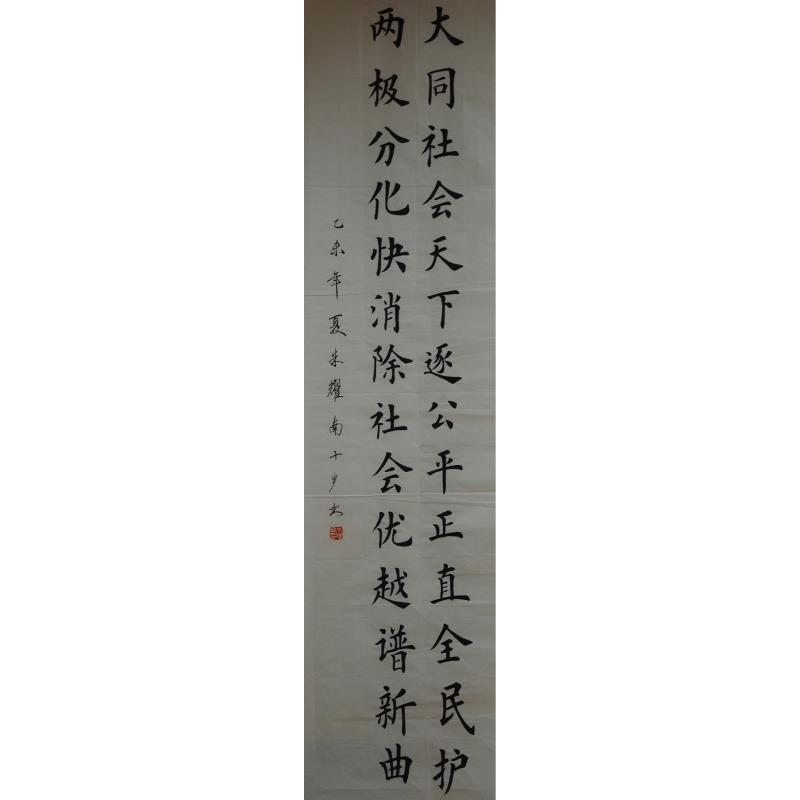 大同社会天下逐公平正直全民护
两极分化快消除社会优越谱新曲
乙未年夏朱耀南十岁书